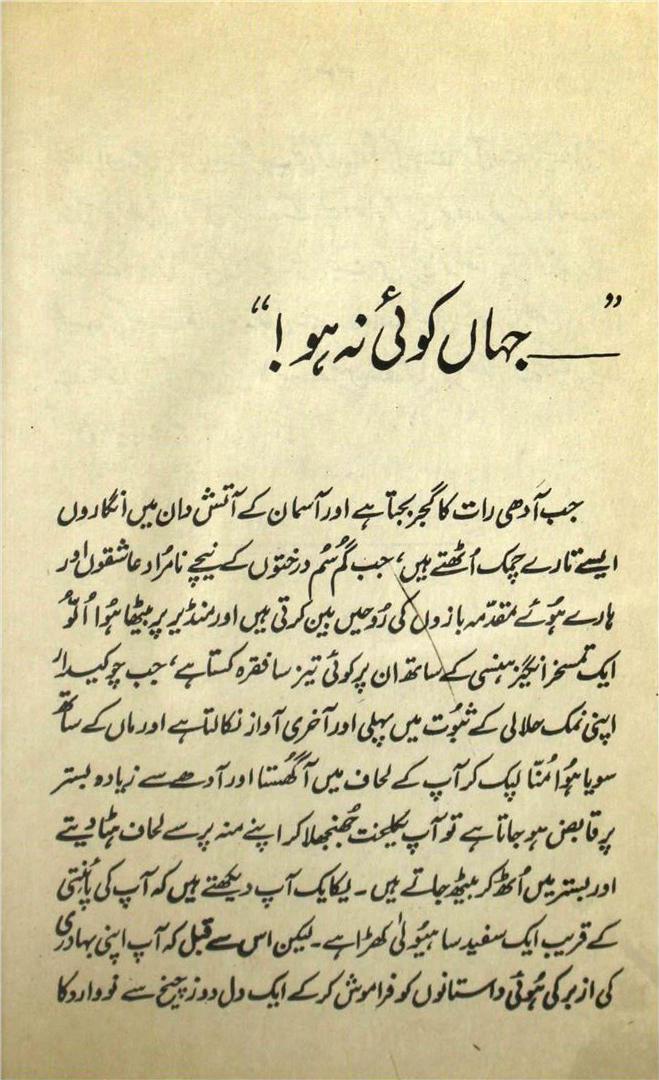 ”——جہاں کوئی نہ ہو!“
جب آدھی رات کا گجر بجتا ہے اور آسمان کے آتش دان میں انگاروں
ایسے تارے چمک اُٹھتے ہیں، جب گُم سُم درختوں کے نیچے نامُراد عاشقوں اور
ہارے ہُوئے مقدّمہ بازوں کی رُوحیں بین کرتی ہیں اور منڈیر پر بیٹھا ہُوا اُلّو
ایک تمسخر انگیز ہنسی کے ساتھ ان پر کوئی تیز سا فقرہ کستا ہے، جب چوکیدار
اپنی نمک حلالی کے ثبُوت میں پہلی اور آخری آواز نکالتا ہے اور ماں کے ساتھ
سویا ہُوا مُنّا لپک کر آپ کے لحاف میں آ گھُستا اور آدھے سے زیادہ بستر
پر قابض ہو جاتا ہے تو آپ یکلخت جُھنجھلا کر اپنے منہ پر سے لحاف ہٹا دیتے
اور بستر میں اُٹھ کر بیٹھ جاتے ہیں۔ یکایک آپ دیکھتے ہیں کہ آپ کی پائنتی
کے قریب ایک سفید سا ہیُولیٰ کھڑا ہے۔ لیکن اس سے قبل کہ آپ اپنی بہادری
کی ازبر کی ہُوئی داستانوں کو فراموش کر کے ایک دل دوز چیخ سے نووارد کا